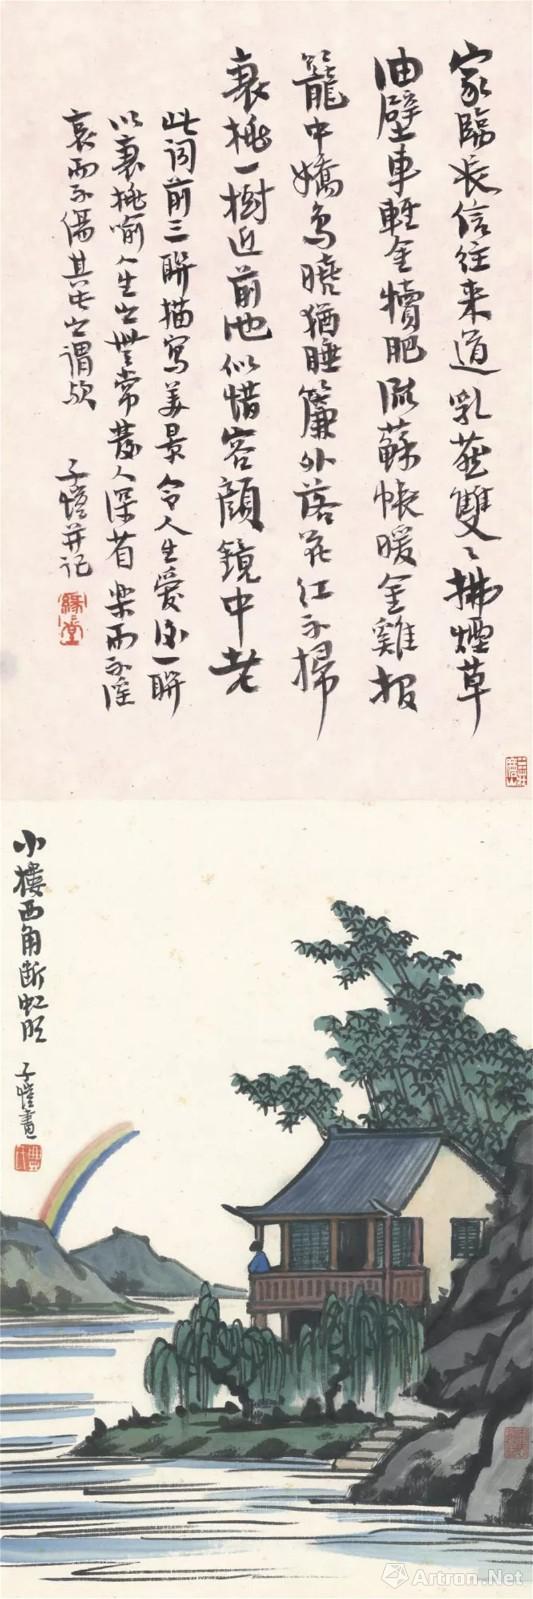 家臨長信往来道乳燕雙〻拂煙草
油壁車輕金犢肥流蘇帳暖金雞報
籠中嬌鳥曉猶睡簾外落花红不掃
衰桃一樹近前池似惜容顔鏡中老
此詞前三聯描寫美景令人生愛後一聯
以衰桃喻人生之無常發人深省樂而不淫
哀而不傷其此之謂歟 子愷并記
緣〻堂
小樓西角断虹明 子愷畫
Artron.Net